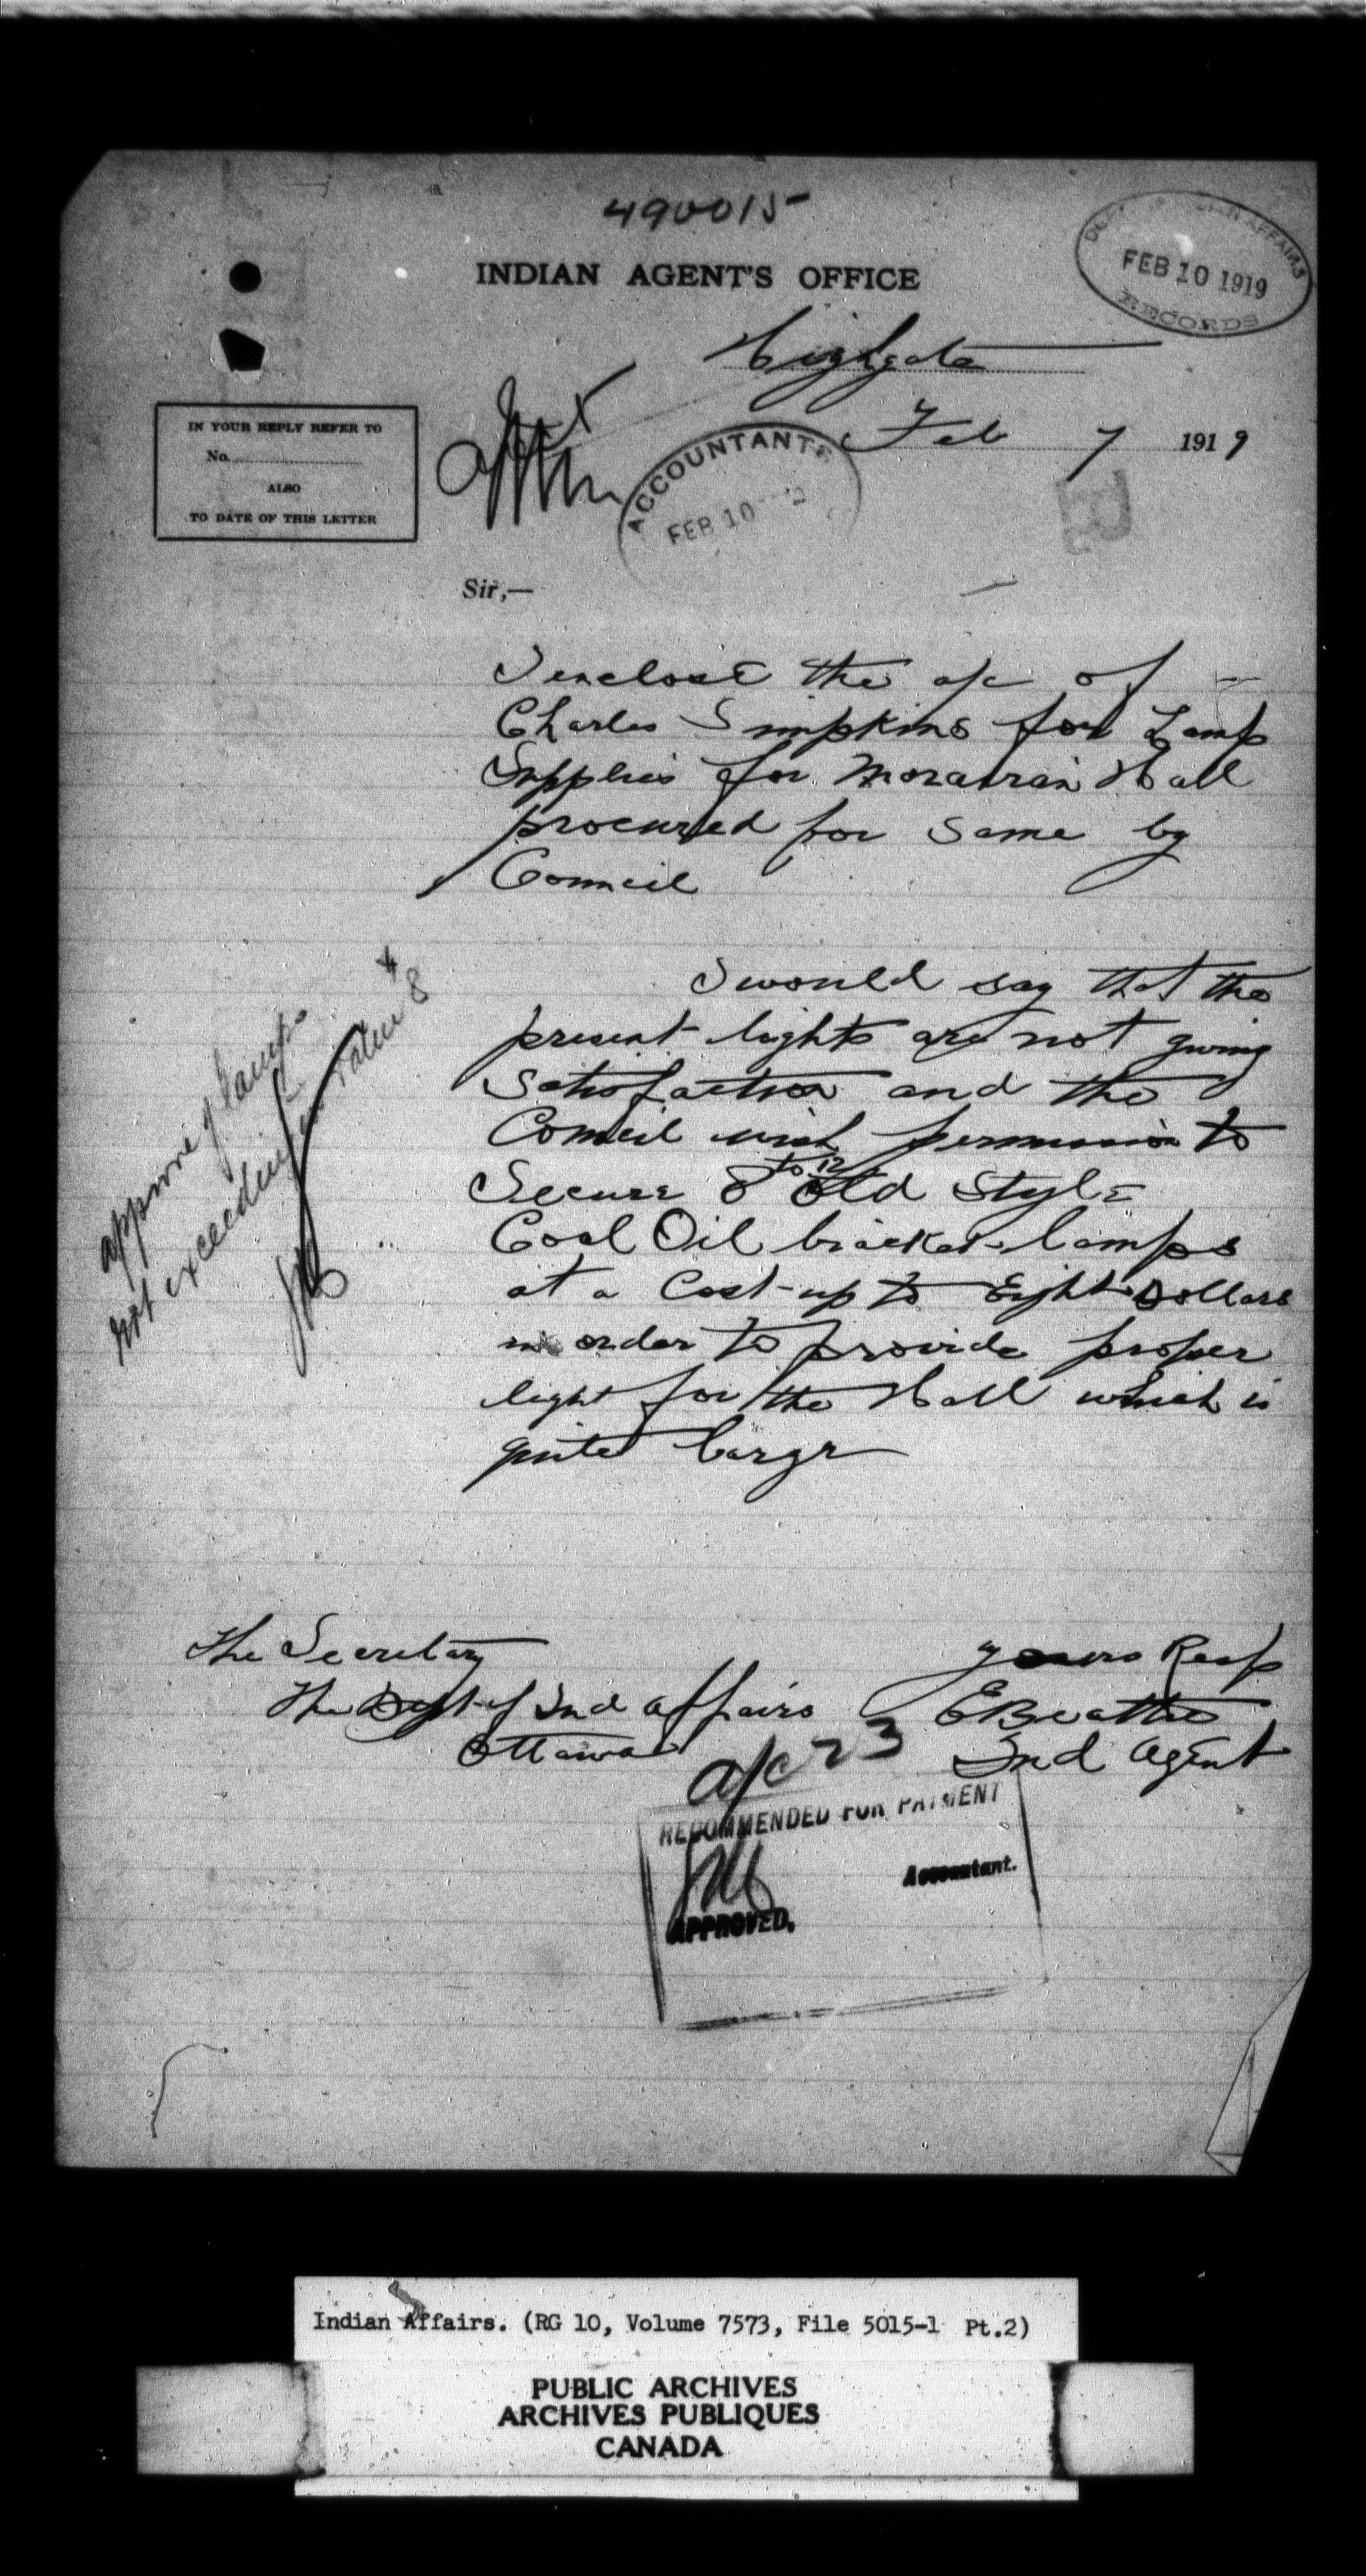 490015
INDIAN AGENT'S OFFICE
AFFAIRS
FEB 10 1919
RECORDS
Highgate
Feb 7 1919
IN YOUR REPLY REFER TO
No.
ALSO
TO DATE OF THIS LETTER
ACCOUNTANT
FEB 10
Sir,—
I enclose the a/c of
Charles Simpkins for Lamp
Supplies for Moravian Hall
procured for same by
Council
I would say that the
present lights are not giving
satisfaction and the
Council wish permission to
Secure 8 to 12 old style
Coal Oil bracket lamps
at a Cost up to Eight Dollars
in order to provide proper
light for the Hall which is
quite large
approve of lamps
not exceeding in value $8
The Secretary
The Dept of Ind Affairs
Ottawa
yours Resp
E Beattie
Ind Agent
a/c 23
RECOMMENDED FOR PAYMENT
Accountant.
APPROVED,
Indian Affairs. (RG 10, Volume 7573, File 5015-1 Pt.2)
PUBLIC ARCHIVES
ARCHIVES PUBLIQUES
CANADA